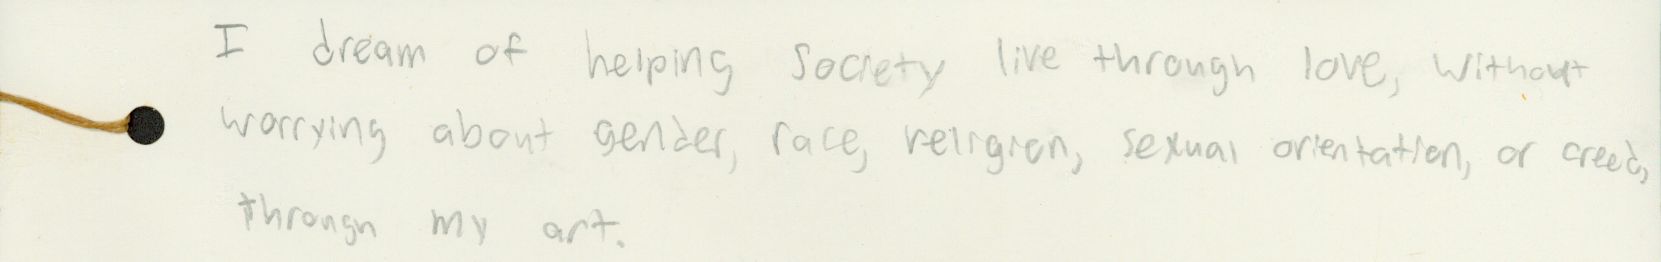 I dream of helping society live through love, without
worrying about gender, race, religion, sexual orientation, or creed,
through my art.